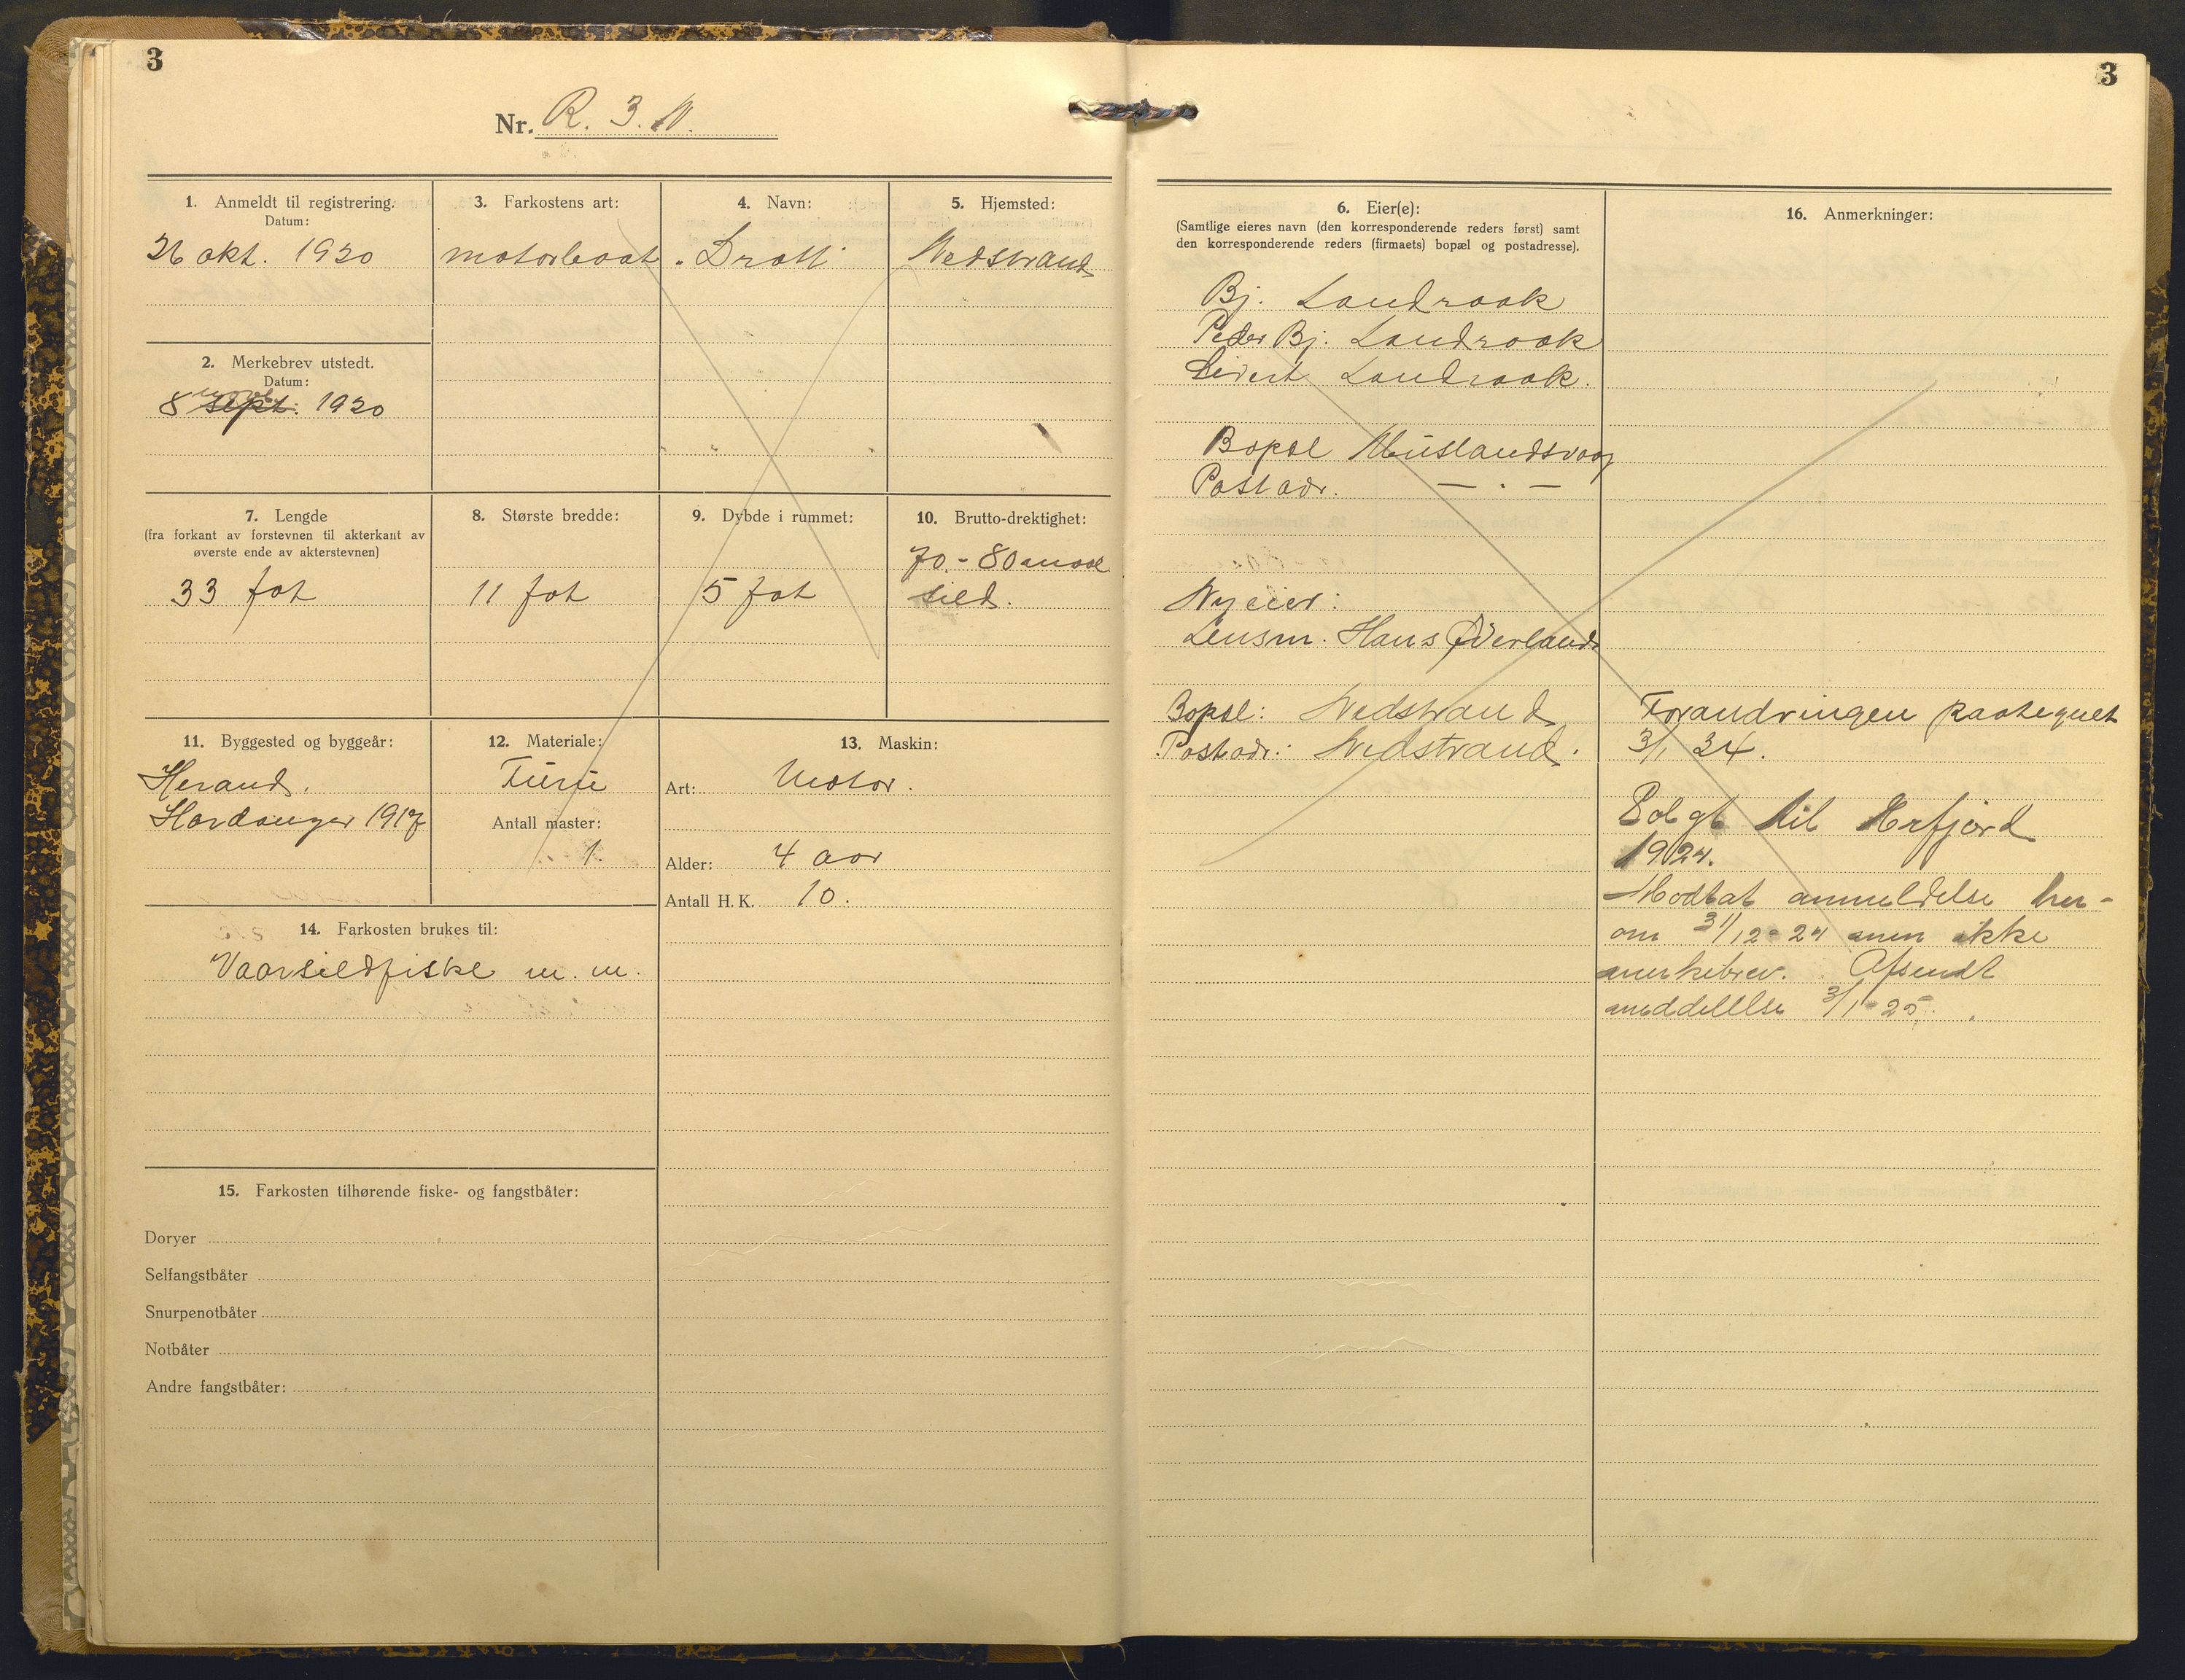 3
Nr. R. 3. N.
1. Anmeldt til registrering.
Datum:
26 okt. 1920
2. Merkebrev utstedt.
Datum:
novb.
8 sept. 1920
3. Farkostens art:
motorbaat
4. Navn:
"Drott"
5. Hjemsted:
Nedstrand
7. Lengde
(fra forkant av forstevnen til akterkant av
øverste ende av akterstevnen)
33 fot
8. Største bredde:
11 fot
9. Dybde i rummet:
5 fot
10. Brutto-drektighet:
70 - 80 maal
sild.
11. Byggested og byggeår:
Herand,
Hardanger 1917
12. Materiale:
Furu
Antall master:
1.
13. Maskin:
Art: Motor.
Alder: 4 aar
Antall H. K. 10.
14. Farkosten brukes til:
Vaarsildfiske m. m.
15. Farkosten tilhørende fiske- og fangstbåter:
Doryer
Selfangstbåter
Snurpenotbåter
Notbåter
Andre fangstbåter:
3
6. Eier(e):
(Samtlige eieres navn (den korresponderende reders først) samt
den korresponderende reders (firmaets) bopæl og postadresse).
Bj. Landraak
Peder Bj. Landraak
Sivert Landraak.
Bopæl Huslandsvaag
Postadr. — . —
Ny eier:
Lensm. Hans Øverland
Bopæl: Nedstrand
Postadr.: Nedstrand.
16. Anmerkninger:
Forandringen paategnet
3/1 24.
Solgt til Erfjord
1924.
Modtat anmeldelse her-
om 31/12-24 men ikke
merkebrev. Afsendt
meddelelse 3/1-25.